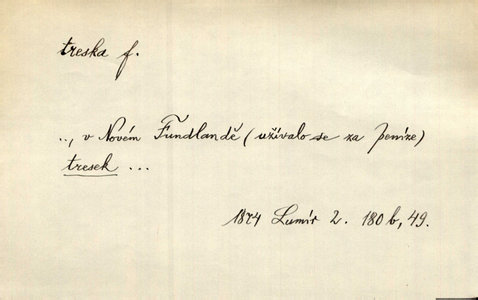 treska f.
.., v Novém Fundlandě (užívalo se za peníze)
tresek ...
1874 Lumír 2. 180 b, 49.